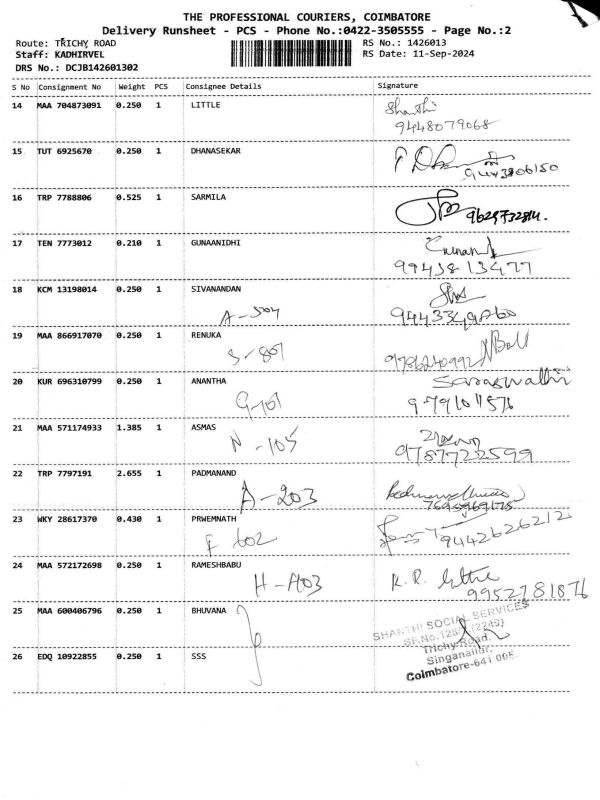 THE PROFESSIONAL COURIERS, COIMBATORE
Delivery Runsheet - PCS - Phone No.:0422-3505555 - Page No.:2
Route: TRICHY ROAD RS No.: 1426013
Staff: KADHIRVEL RS Date: 11-Sep-2024
DRS No.: DCJB142601302
S No Consignment No Weight PCS Consignee Details Signature
14 MAA 704873091 0.250 1 LITTLE Shanthi
9448079068
15 TUT 6925670 0.250 1 DHANASEKAR
16 TRP 7788806 0.525 1 SARMILA
17 TEN 7773012 0.210 1 GUNAANIDHI
9943813477
18 KCM 13198014 0.250 1 SIVANANDAN
A-504
19 MAA 866917070 0.250 1 RENUKA
S-801
20 KUR 696310799 0.250 1 ANANTHA Saraswathi
G-101
21 MAA 571174933 1.385 1 ASMAS
N-105 9787722599
22 TRP 7797191 2.655 1 PADMANAND
A-203 7695969175
23 WKY 28617370 0.430 1 PRWEMNATH
F 602 9442626212
24 MAA 572172698 0.250 1 RAMESHBABU K.R.
H-A03 9952781876
25 MAA 600406796 0.250 1 BHUVANA
SHANTHI SOCIAL SERVICES
Trichy Road,
Singanallur,
Coimbatore-641 005.
26 EDQ 10922855 0.250 1 SSS